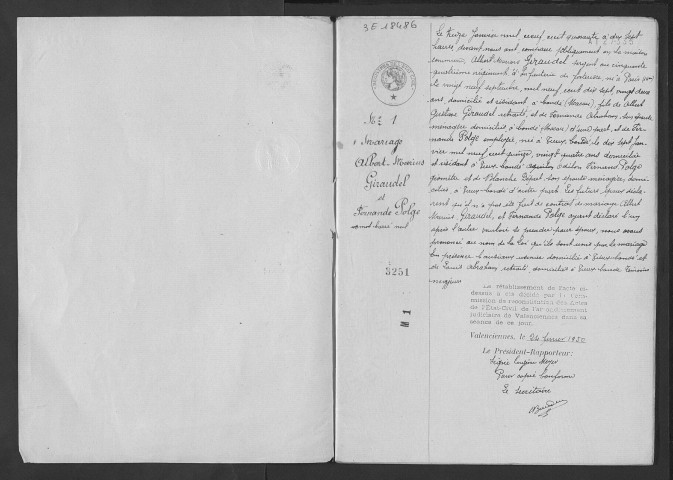 3E 18486
N° 1
Mariage
Albert Marius
Giraudel
et
Fernande Polge
3251
M 1
Le treize Janvier mil neuf cent quarante à dix sept
heures devant nous ont comparu publiquement en la maison
commune, Albert Marius Giraudel, sergent au cinquante
quatrième régiment d'Infanterie de forteresse, né à Paris
le vingt neuf septembre, mil neuf cent dix sept, vingt deux
ans, domicilié et résidant à Condé fils de Albert
Gustave Giraudel retraité, et de Fernande son épouse
ménagère, domiciliés à Condé d'une part, et de Fer-
nande Polge employée, née à Vieux-Condé le dix sept Jan-
vier mil neuf cent quinze, vingt quatre ans domiciliée
et résidant à Vieux-Condé Odilon Firmin Polge
géomètre et de Blanche son épouse ménagère, domi-
ciliés, à Vieux-Condé d'autre part. Les futurs époux décla-
rent qu'il n'a pas été fait de contrat de mariage. Albert
Marius Giraudel, et Fernande Polge ayant déclaré l'un
après l'autre vouloir se prendre pour époux, nous avons
prononcé au nom de la Loi qu'ils sont unis par le mariage
En présence domicilié à Vieux-Condé et
de Louis Abraham retraité, domicilié à Vieux-Condé témoins
majeurs
Le rétablissement de l'acte ci-
dessus a été décidé par la Com-
mission de reconstitution des Actes
de l'État-Civil de l'arrondissement
judiciaire de Valenciennes dans sa
séance de ce jour.
Valenciennes, le 24 février 1925
Le Président-Rapporteur:
Signé
Pour copie conforme
Le secrétaire